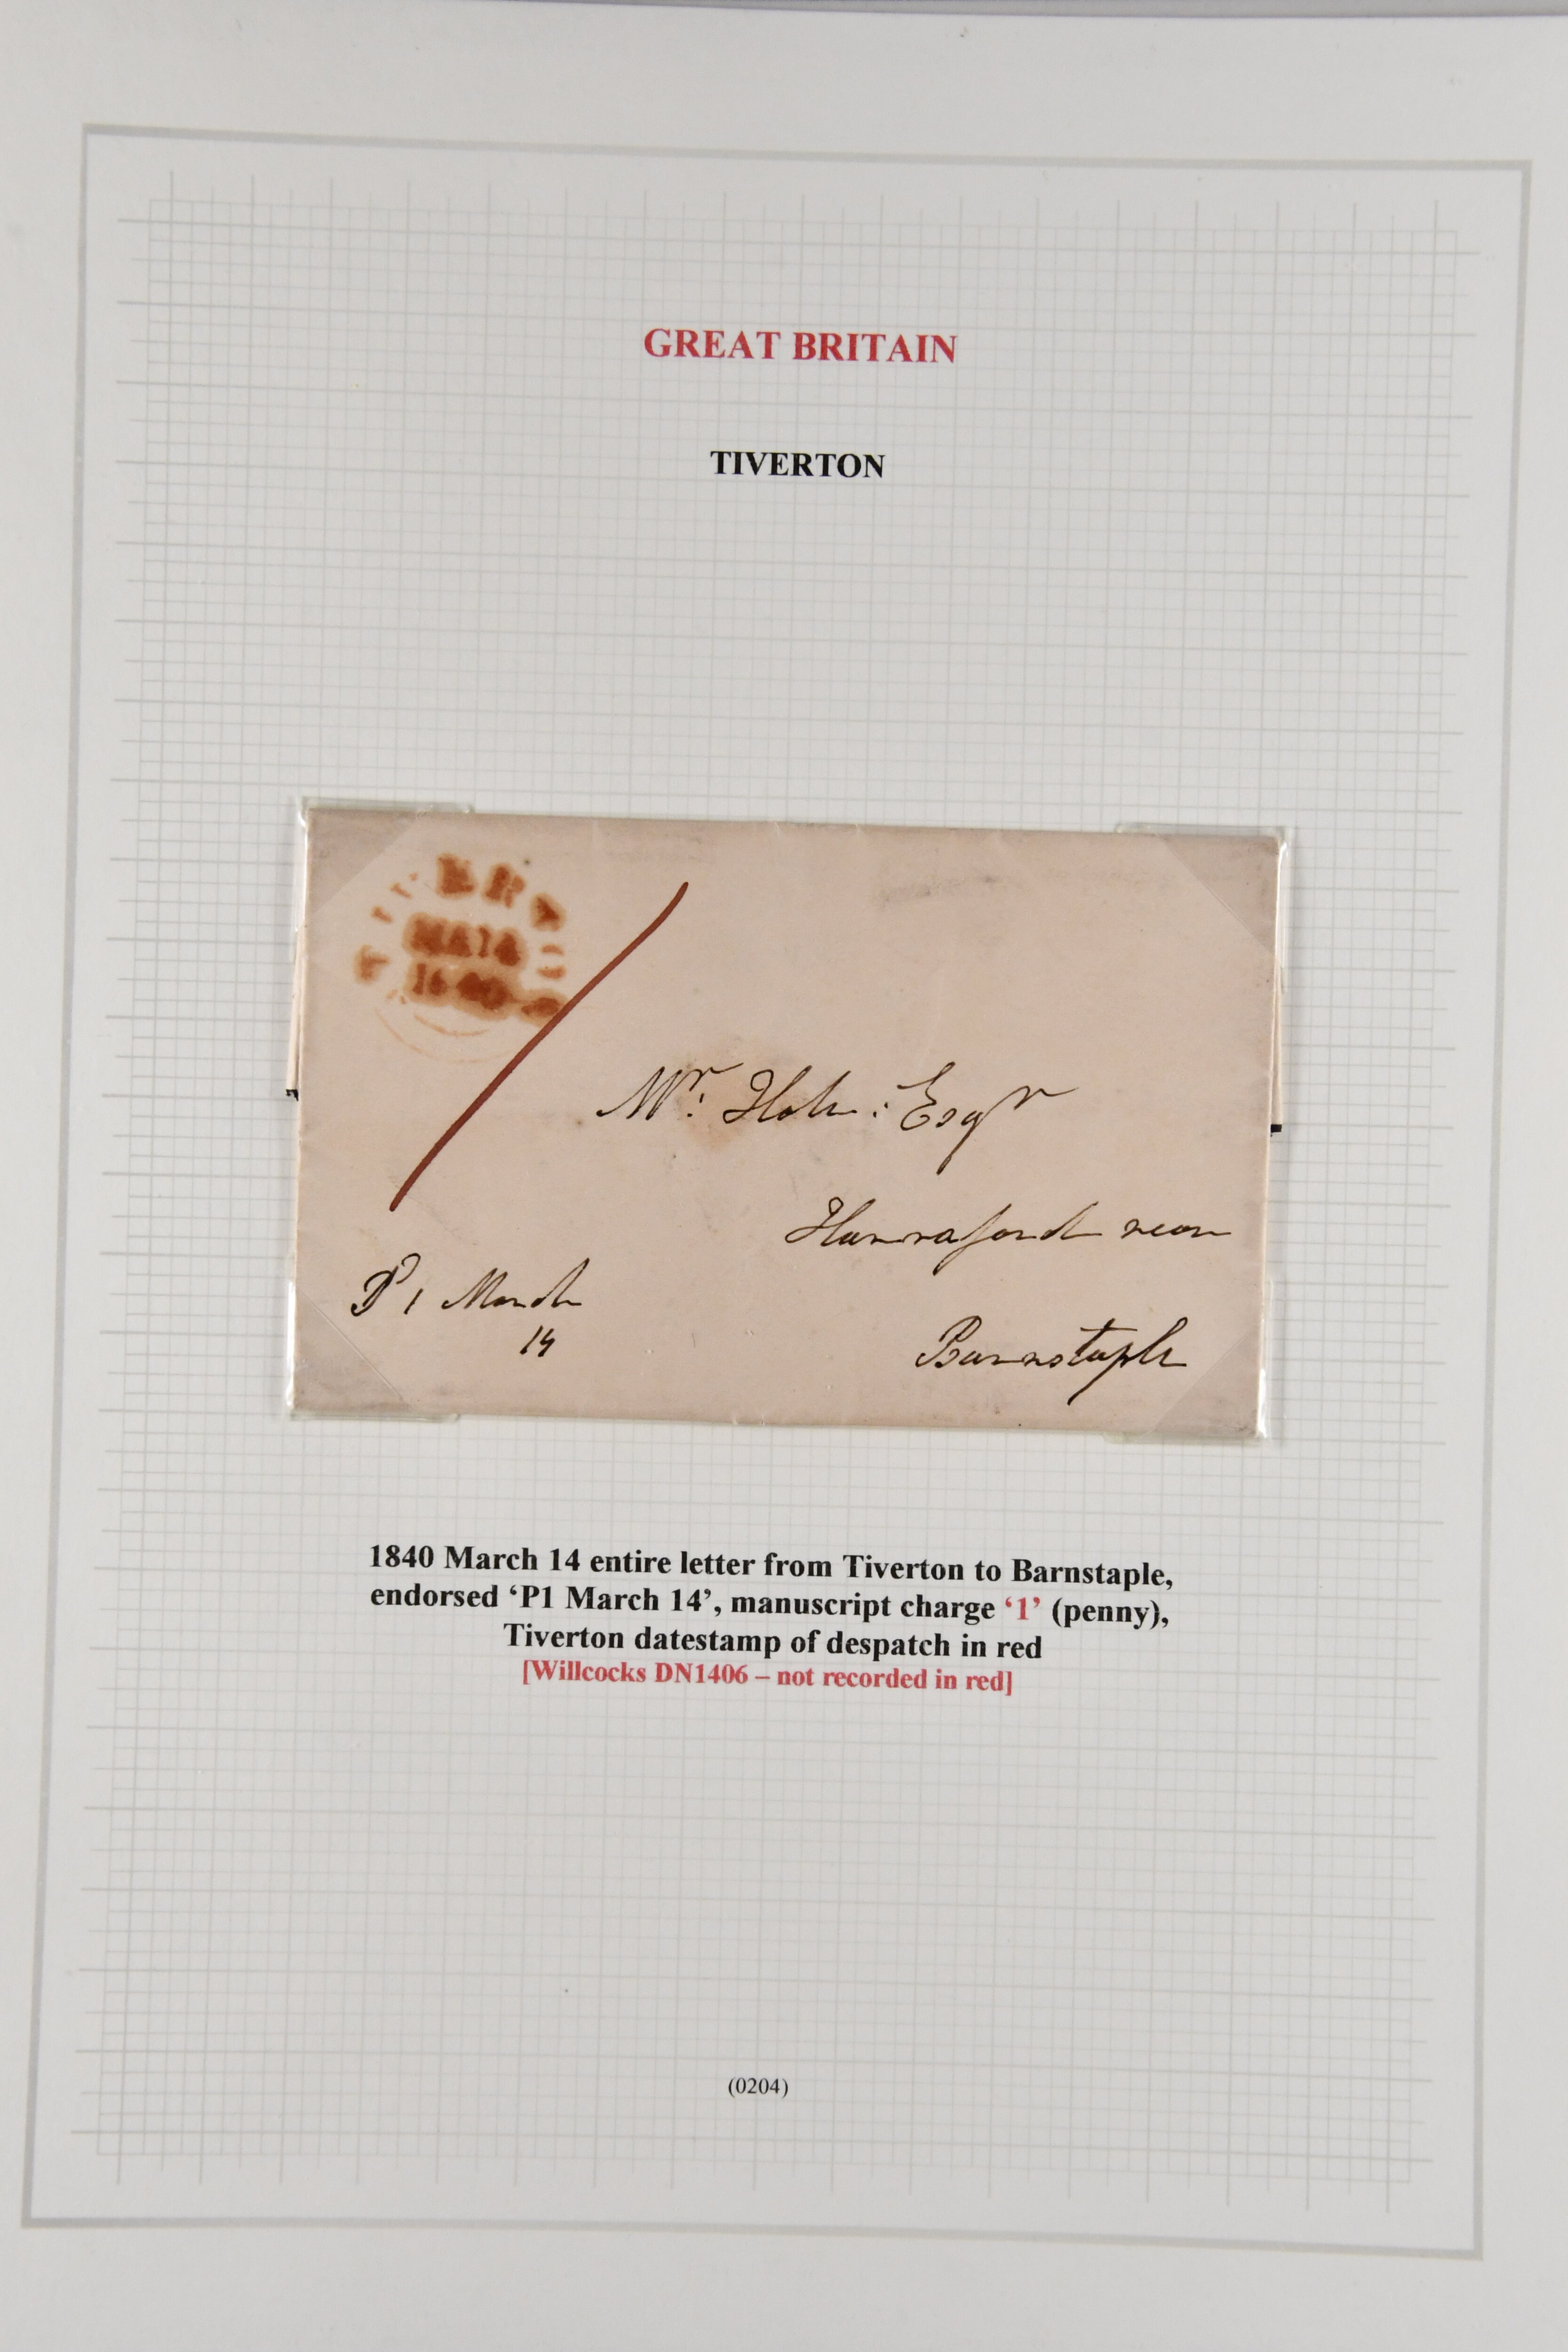 GREAT BRITAIN
TIVERTON
TIVERTO
MA 14
1840
1
Mr: : Esqr
near
Barnstaple
P 1 March
14
1840 March 14 entire letter from Tiverton to Barnstaple,
endorsed ‘P1 March 14’, manuscript charge ‘1’ (penny),
Tiverton datestamp of despatch in red
[Willcocks DN1406 – not recorded in red]
(0204)